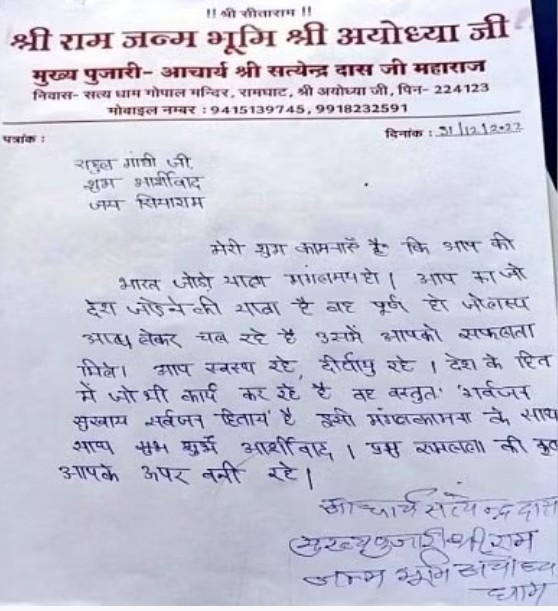 !! श्री सीताराम !!
श्री राम जन्म भूमि श्री अयोध्या जी
मुख्य पुजारी- आचार्य श्री सत्येन्द्र दास जी महाराज
निवास- सत्य धाम गोपाल मन्दिर, रामघाट, श्री अयोध्या जी, पिन- 224123
मोबाइल नम्बर : 9415139745, 9918232591
पत्रांक : दिनांक : 31/12/2022
राहुल गांधी जी,
शुभ आर्शीवाद
जय सियाराम
मेरी शुभ कामनाएँ है कि आप की
भारत जोडो यात्रा मंगलमय हो । आप का जो
देश जोडने की यात्रा है वह पूर्ण हो जो लक्ष्य
आप लेकर चल रहे है उसमें आपको सफलता
मिले। आप स्वस्थ रहे, दीर्घायु रहे । देश के हित
में जो भी कार्य कर रहे है वह वस्तुतः 'सर्वजन
सुखाय सर्वजन हिताय' है इसी मंगलकामना के साथ
साथ शुभ आर्शीवाद । प्रभु रामलला की
आपके ऊपर बनी रहे ।
आचार्य सत्येन्द्र दास
मुख्य पुजारी श्री राम
जन्म भूमि अयोध्या
धाम